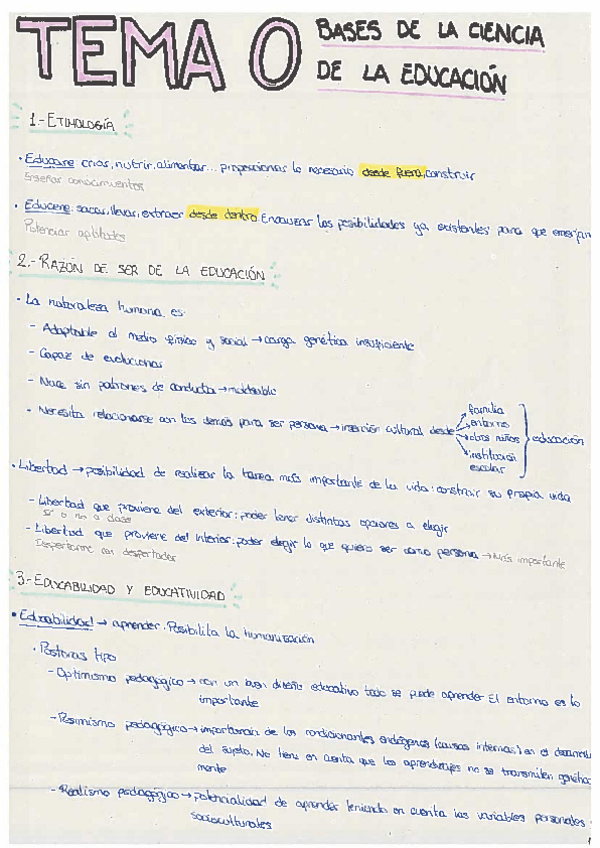 TEMA 0 BASES DE LA CIENCIA
DE LA EDUCACIÓN
1.- ETIMOLOGÍA
· Educare: criar, nutrir, alimentar... proporcionar lo necesario desde fuera, construir
Enseñar conocimientos
· Educere: sacar, llevar, extraer desde dentro. Encauzar las posibilidades ya existentes para que emerjan
Potenciar aptitudes
2.- RAZÓN DE SER DE LA EDUCACIÓN
· La naturaleza humana es:
- Adaptable al medio físico y social → carga genética insuficiente
- Capaz de evolucionar
- Nace sin patrones de conducta → moldeable
- Necesita relacionarse con los demás para ser persona → inserción cultural desde
familia
entorno
otros niños
institución
escolar
educación
· Libertad → posibilidad de realizar la tarea más importante de la vida: construir su propia vida
- Libertad que proviene del exterior: poder tener distintas opciones a elegir
Ir o no a clase
- Libertad que proviene del interior: poder elegir lo que quiero ser como persona → Más importante
Despertarme con despertador
3.- EDUCABILIDAD Y EDUCATIVIDAD
· Educabilidad → aprender. Posibilita la humanización
· Posturas tipo
- Optimismo pedagógico → con un buen diseño educativo todo se puede aprender. El entorno es lo
importante
- Pesimismo pedagógico → importancia de los condicionantes endógenos (causas internas) en el desarrollo
del sujeto. No tiene en cuenta que los aprendizajes no se transmiten genética
mente
- Realismo pedagógico → potencialidad de aprender teniendo en cuenta las variables personales
socioculturales
1